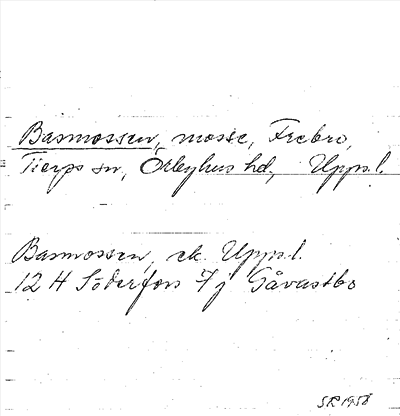 Basmossen, mosse, Frebro,
Tierps sn, Örbyhus hd, Uppl.
Basmossen, ek. Uppl.
12 H Söderfors 7j Gåvastbo
SR 1958